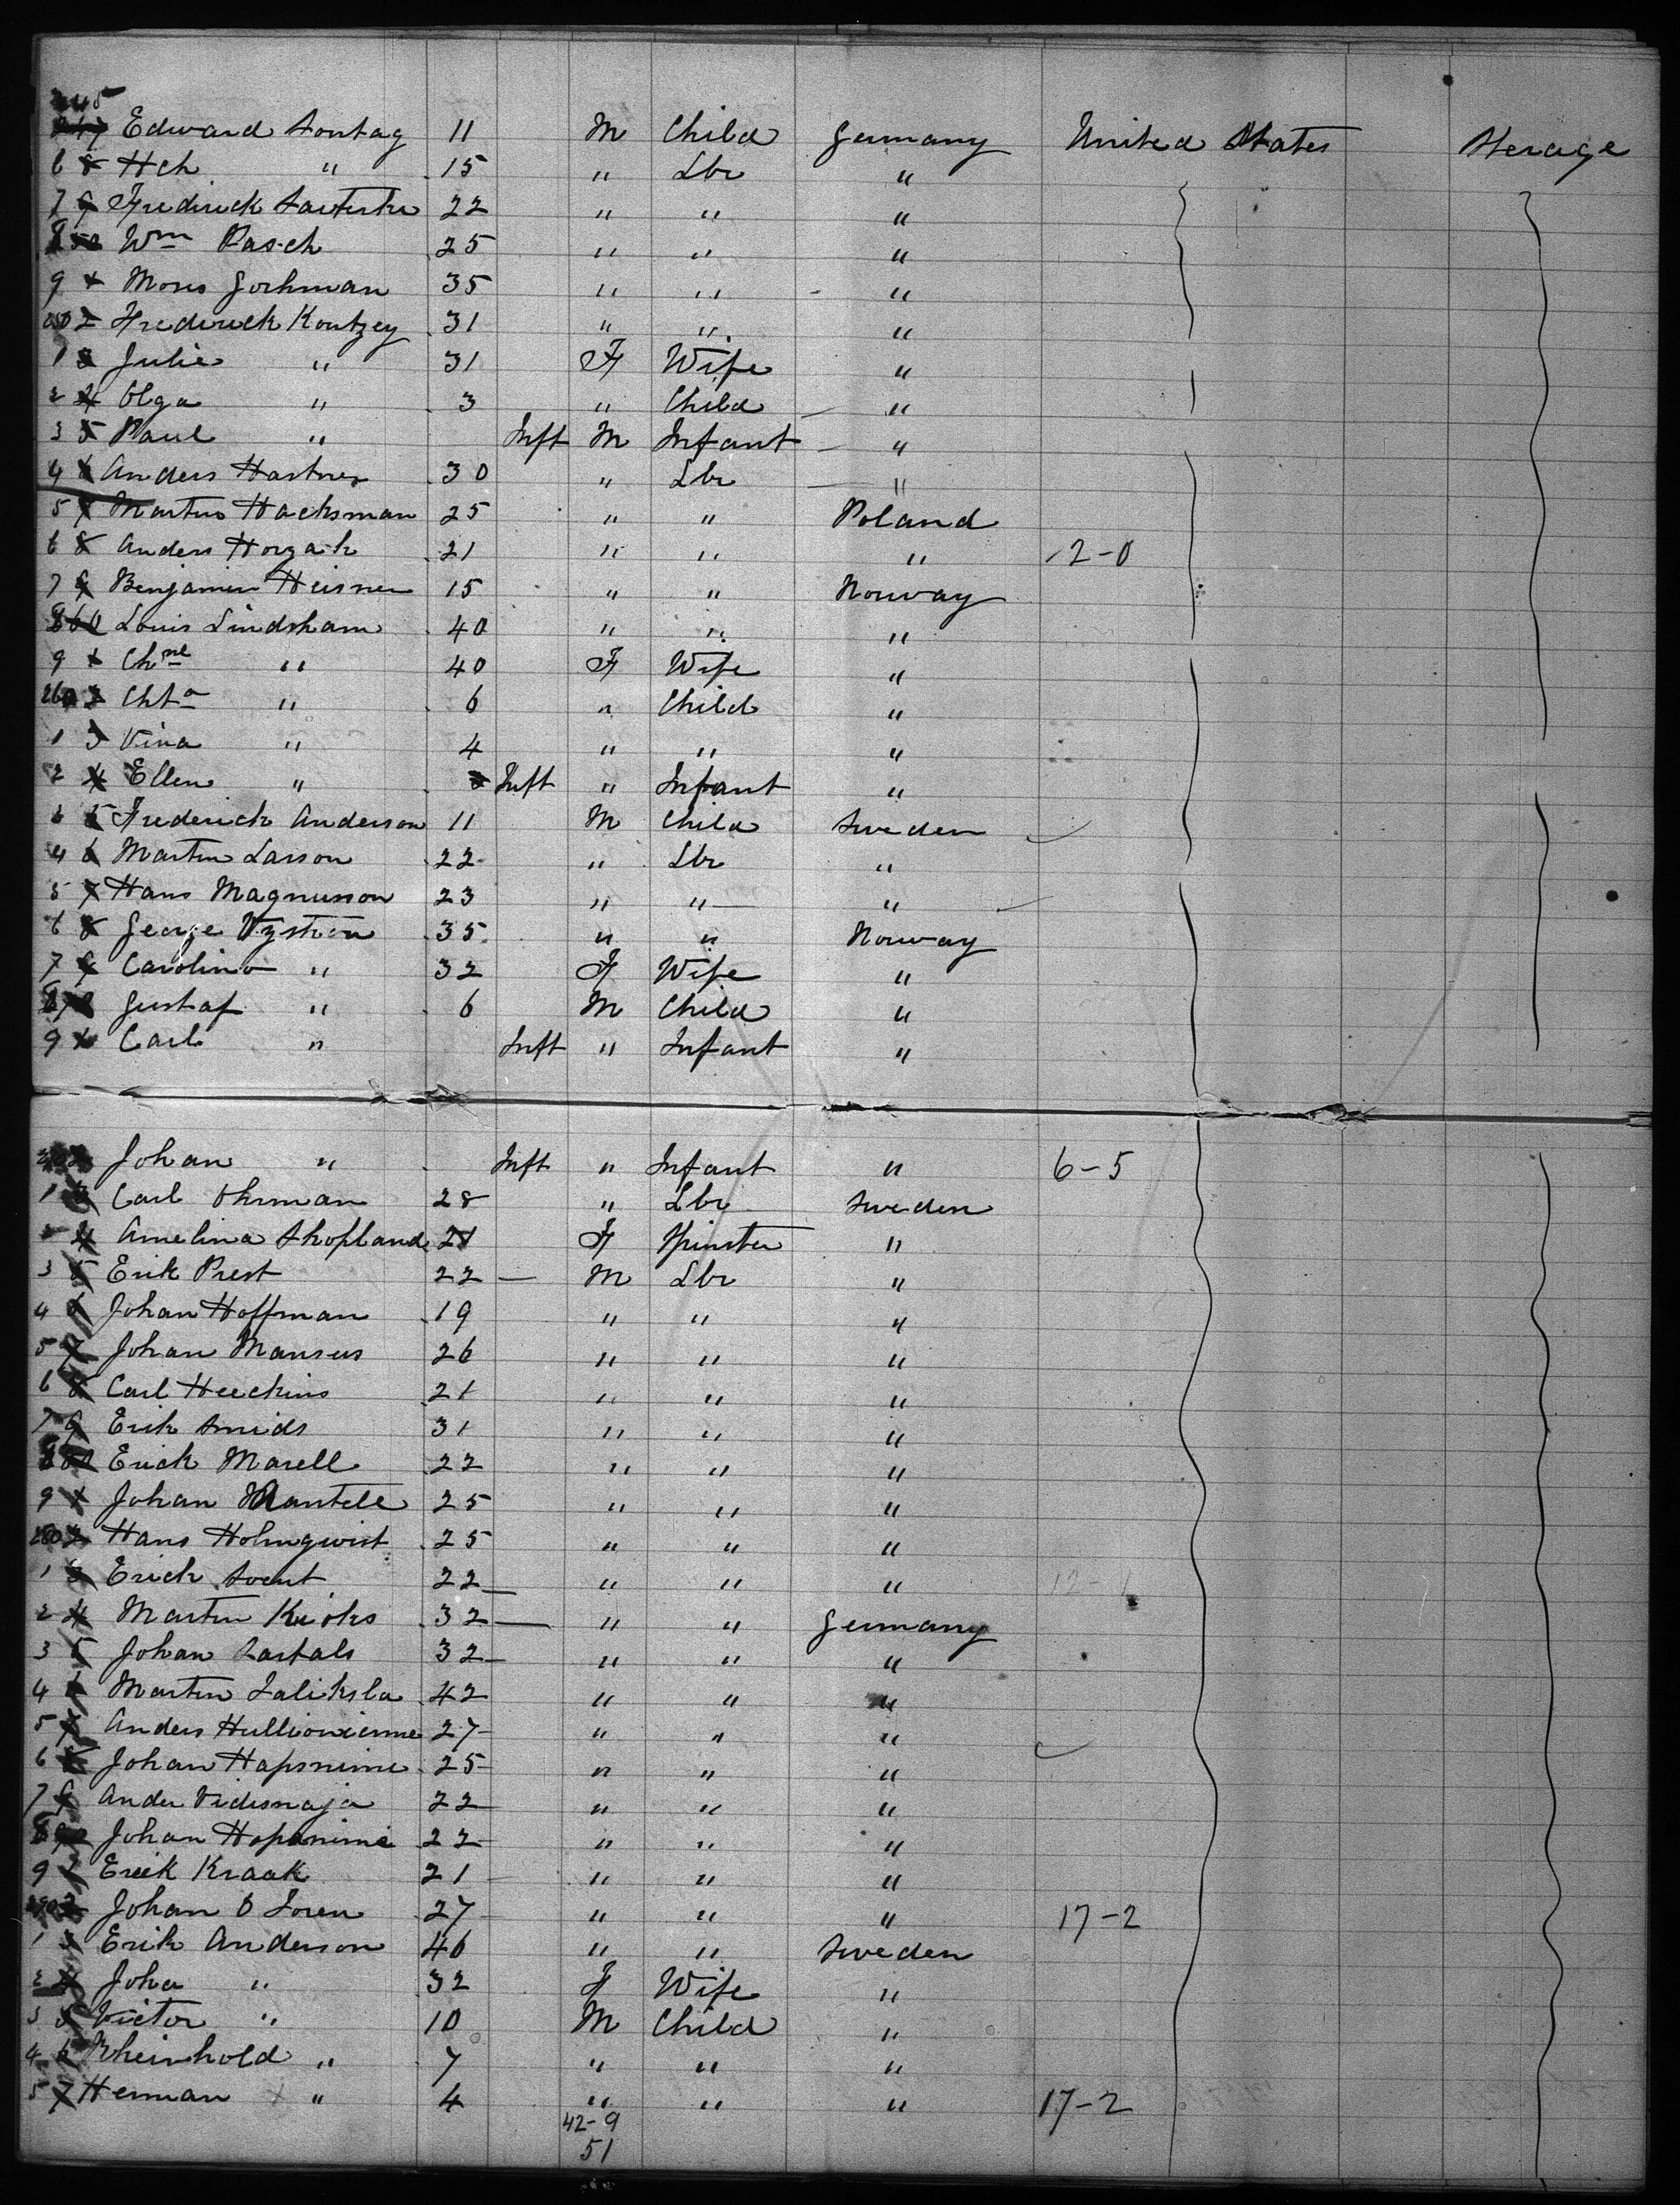 245
Edward Sontag 11 M Child Germany United States Sterage
6 Hch " 15 " Lbr "
7 Frederick 22 " " "
8 Wm Pasch 25 " " "
9 Mons Gorhman 35 " " "
250 Frederick Kontzey 31 " " "
1 Julie " 31 F Wife "
2 Olga " 3 " Child "
3 Paul " Inft M Infant "
4 Anders Hartner 30 " Lbr "
5 Martin Hacksman 25 " " Poland
6 Anders Horzah 21 " " " 2-0
7 Benjamin Heisner 15 " " Norway
8 Louis Lindsham 40 " " "
9 Chne " 40 F Wife "
260 Chta " 6 " Child "
1 Vina " 4 " " "
2 Ellen " Inft " Infant "
3 Frederick Anderson 11 M Child Sweden
4 Martin Larson 22 " Lbr "
5 Hans Magnusson 23 " " "
6 George 35 " " Norway
7 Carolina " 32 F Wife "
8 Gustaf " 6 M Child "
9 Carl " Inft " Infant "
Johan " Inft " Infant " 6-5
1 Carl Ohrman 28 " Lbr Sweden
2 Amelina Shopland 21 F Spinster "
3 Erik Prest 22 M Lbr "
4 Johan Hoffman 19 " " "
5 Johan Mansus 26 " " "
6 Carl Heeckins 21 " " "
7 Erik Smids 31 " " "
8 Erick Marell 22 " " "
9 Johan Mantell 25 " " "
280 Hans Holmqwist 25 " " "
1 Erich Svent 22 " " "
2 Martin 32 " " Germany
3 Johan 32 " " "
4 Martin 42 " " "
5 Anders 27 " " "
6 Johan Hapsnimi 25 " " "
7 Ander 22 " " "
8 Johan Hopsnimi 22 " " "
9 Erik Kraak 21 " " "
290 Johan O Loren 27 " " " 17-2
1 Erik Anderson 46 " " Sweden
2 Joha " 32 F Wife "
3 Victor " 10 M Child "
4 Rheinhold " 7 " " "
5 Herman " 4 " " " 17-2
42-9
51